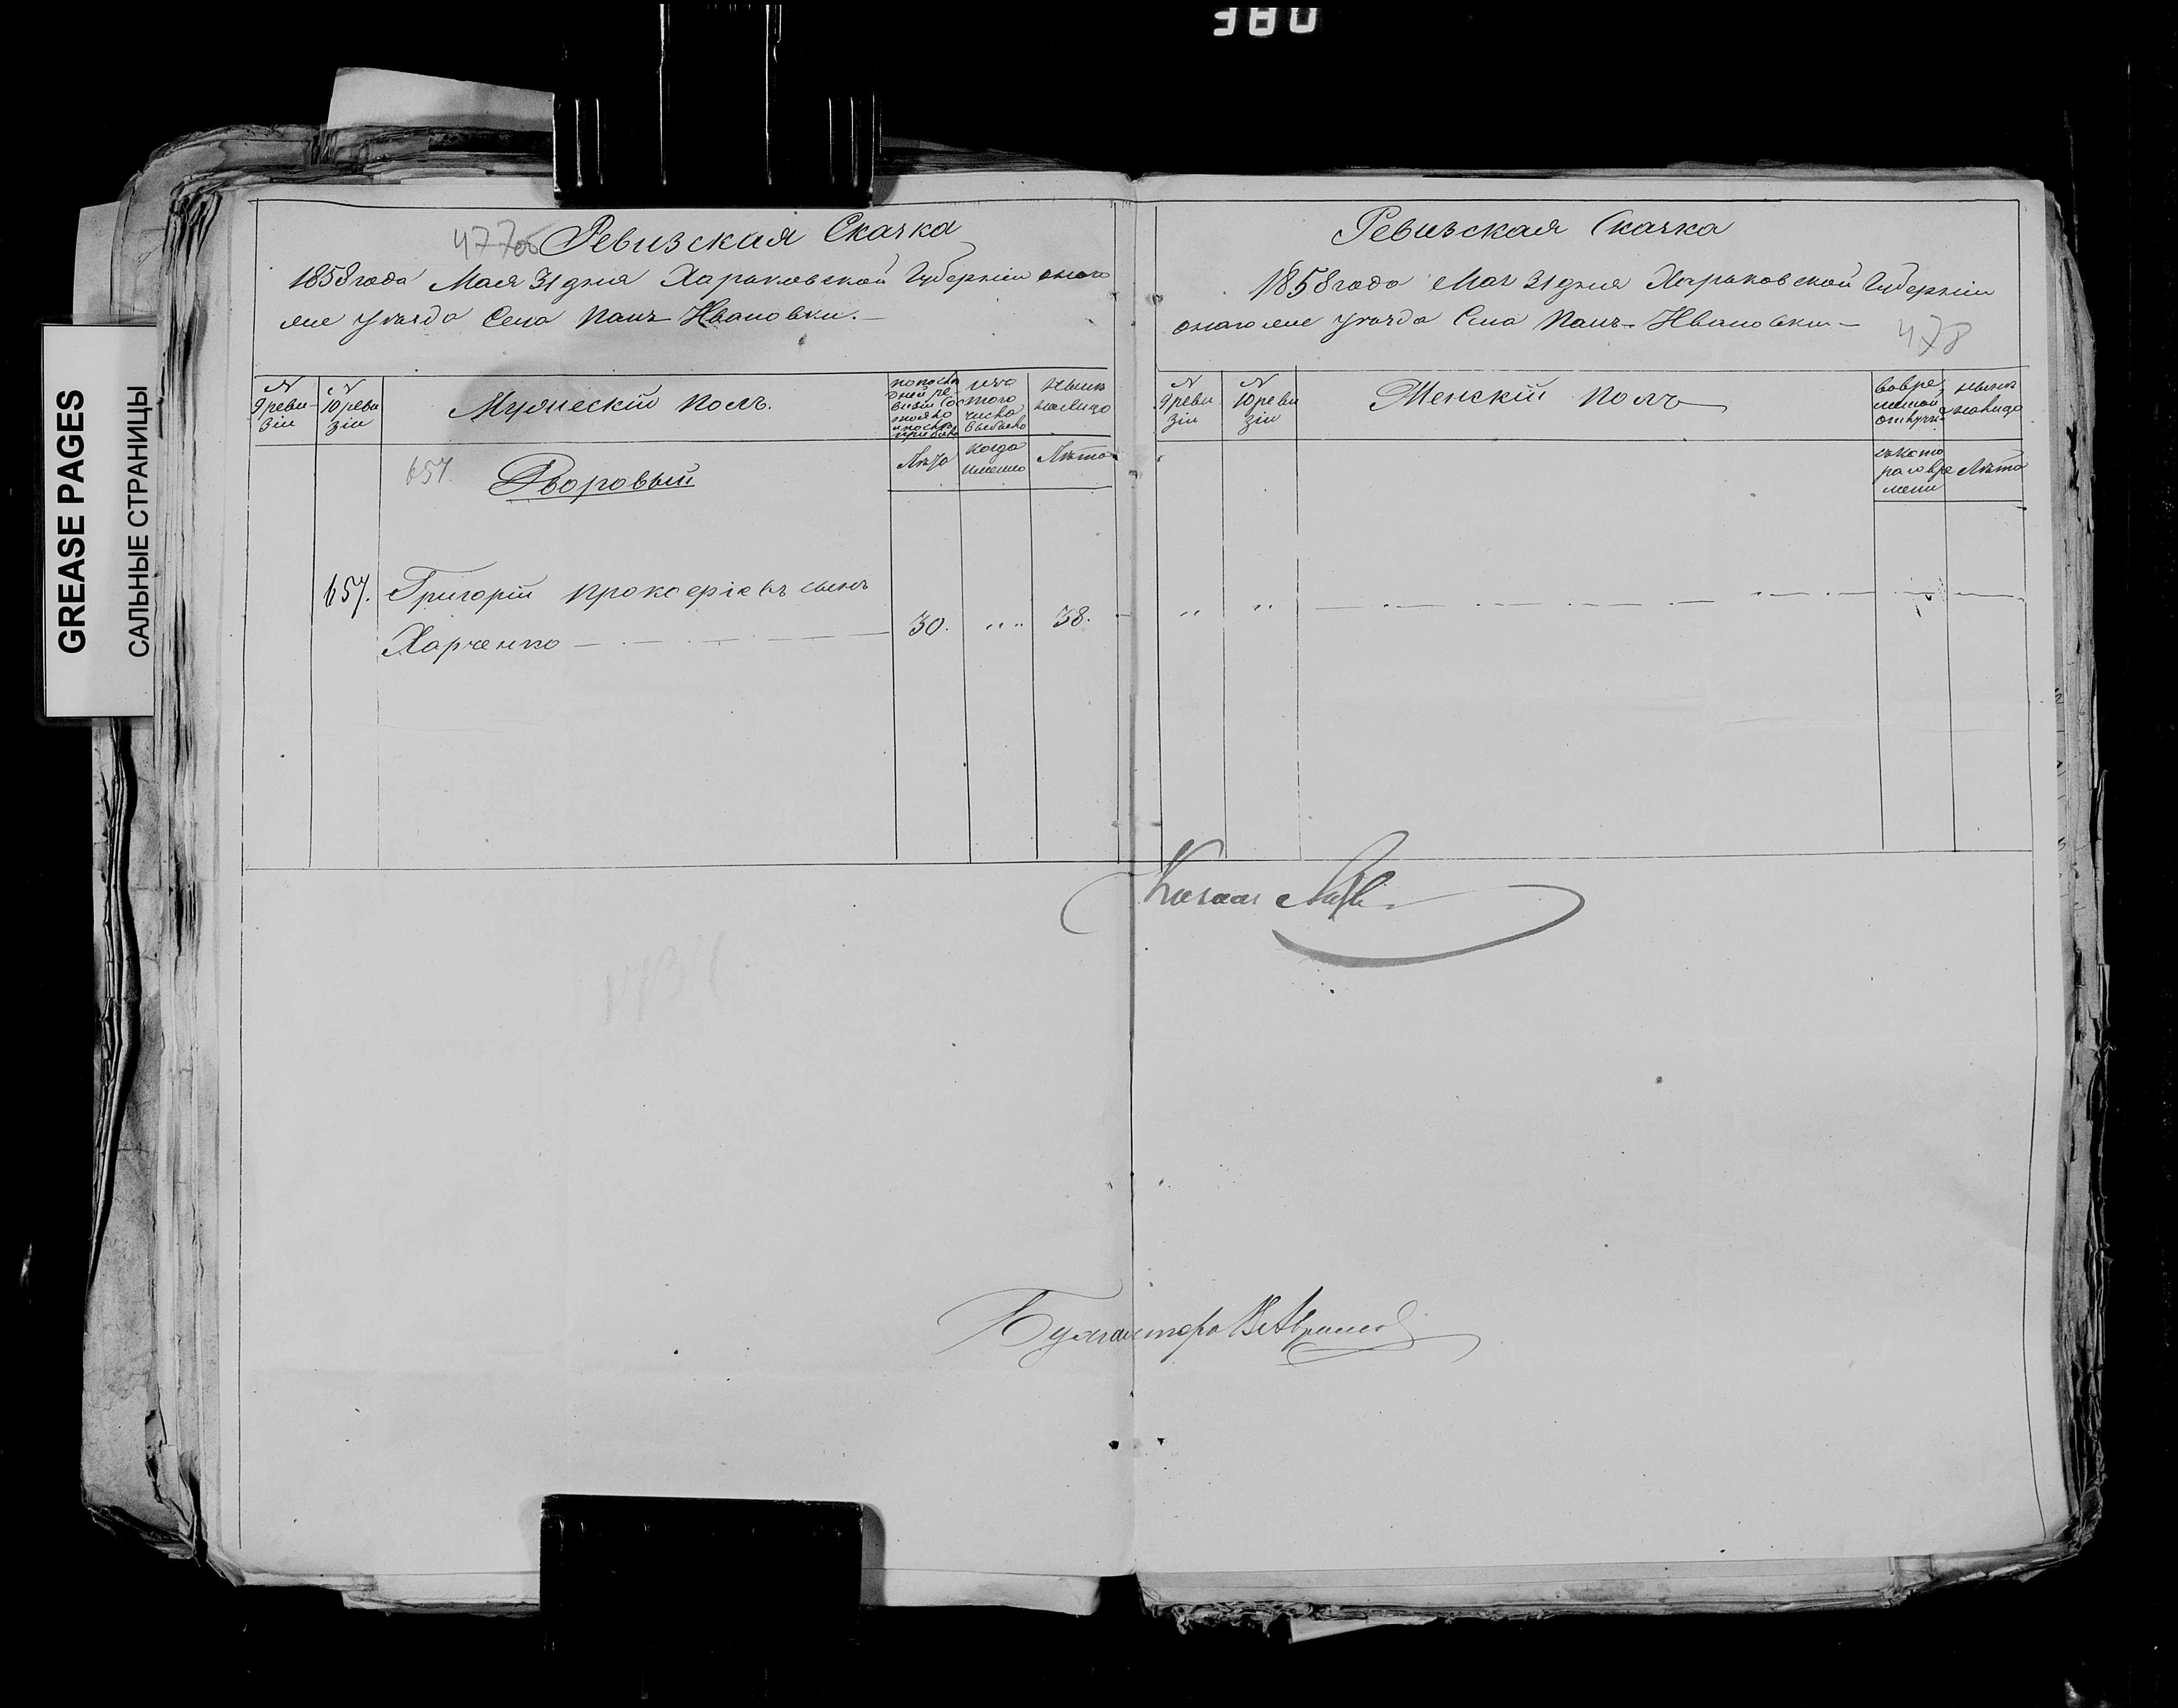 380
GREASE PAGES
САЛЬНЫЕ СТРАНИЦЫ
477об Ревизская Скаска
1858 года Мая 31 дня Харьковской Губерніи оного
же уѣзда Села Панъ Ивановки.
N
9 реви-
зіи
N
10 реви
зіи
Мужескій полъ.
по послѣ
дней ре-
визіи сос
тояло
и послѣ
прибыло
изъ
того
числа
выбыло
нынѣ
налицо
Лѣта
когда
именно
Лѣта
657.
Дворовый
657. Григорій Прокофіевъ сынъ
Харченко 30. „ „ 38.
Ревизская Скаска
1858 года Мая 31 дня Харьковской Губерніи
оного же уѣзда Села Панъ-Ивановки
478
N
9 реви
зіи
N
10 реви
зіи
Женскій полъ
во вре
менной
отлучкѣ
нынѣ
налицо
съ кото
раго вре
мени
Лѣта
„ „
Бухгалтеръ